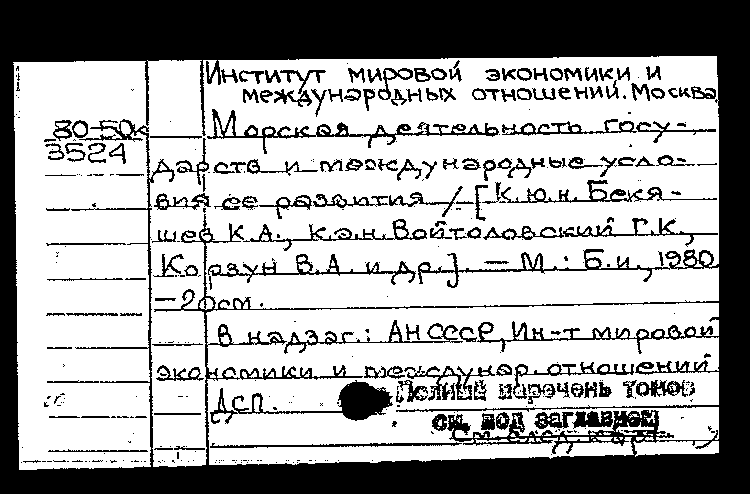 Институт мировой экономики и
международных отношений. Москва
80-50к
3524
Морская деятельность госу-
дарств и международные усло-
вия ее развития / [К.ю.н. Бекя-
шев К.А., к.э.н. Войтоловский Г.К.,
Корзун В.А. и др.]. — М.: Б.и., 1980
— 20см.
В надзаг.: АН СССР, Ин-т мировой
экономики и междунар. отношений
ДСП.
Полный перечень томов
см. под заглавием
См. след. карт.